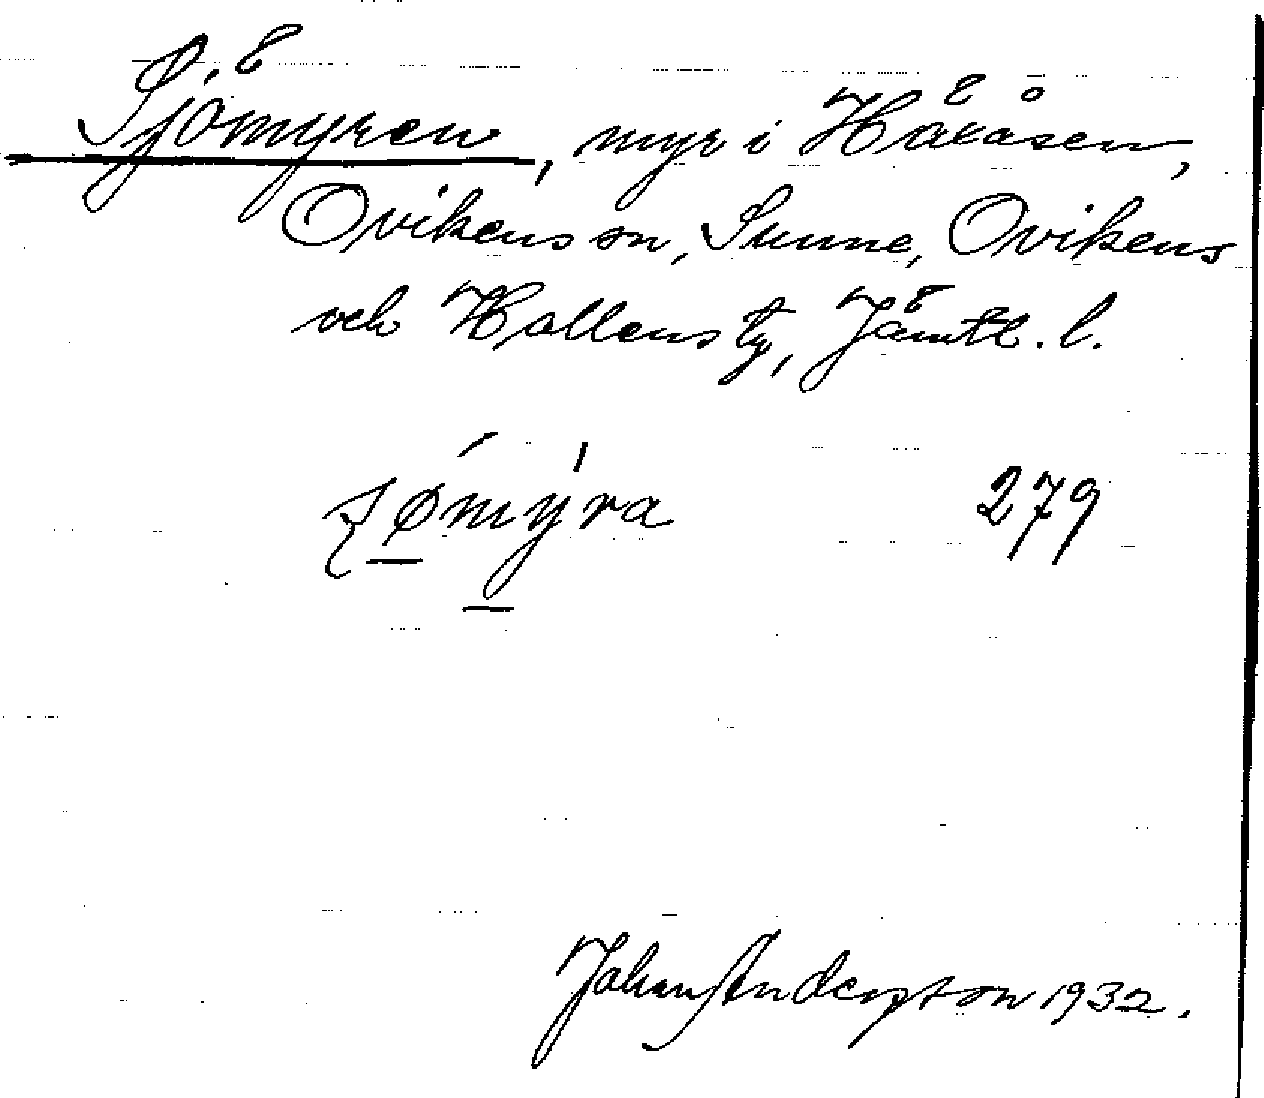 Sjömyren, myr i Häxåsen,
Ovikens sn, Sunne, Ovikens
och Hallens tg, Jämtl. l.
279
Johan Anderson 1932.